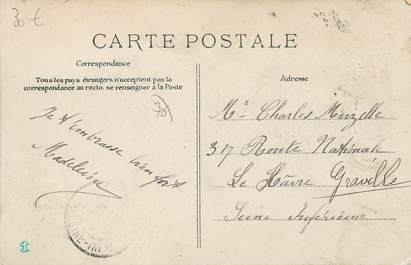 30-€
CARTE POSTALE
Correspondance
Tous les pays étrangers n'acceptent pas la
correspondance au recto. se renseigner à la Poste
Je t'embrasse bien fort
Madeleine
Adresse
Mr Charles Muzelle
317 Route Nationale
Le Hâvre Graville
Seine Inférieure